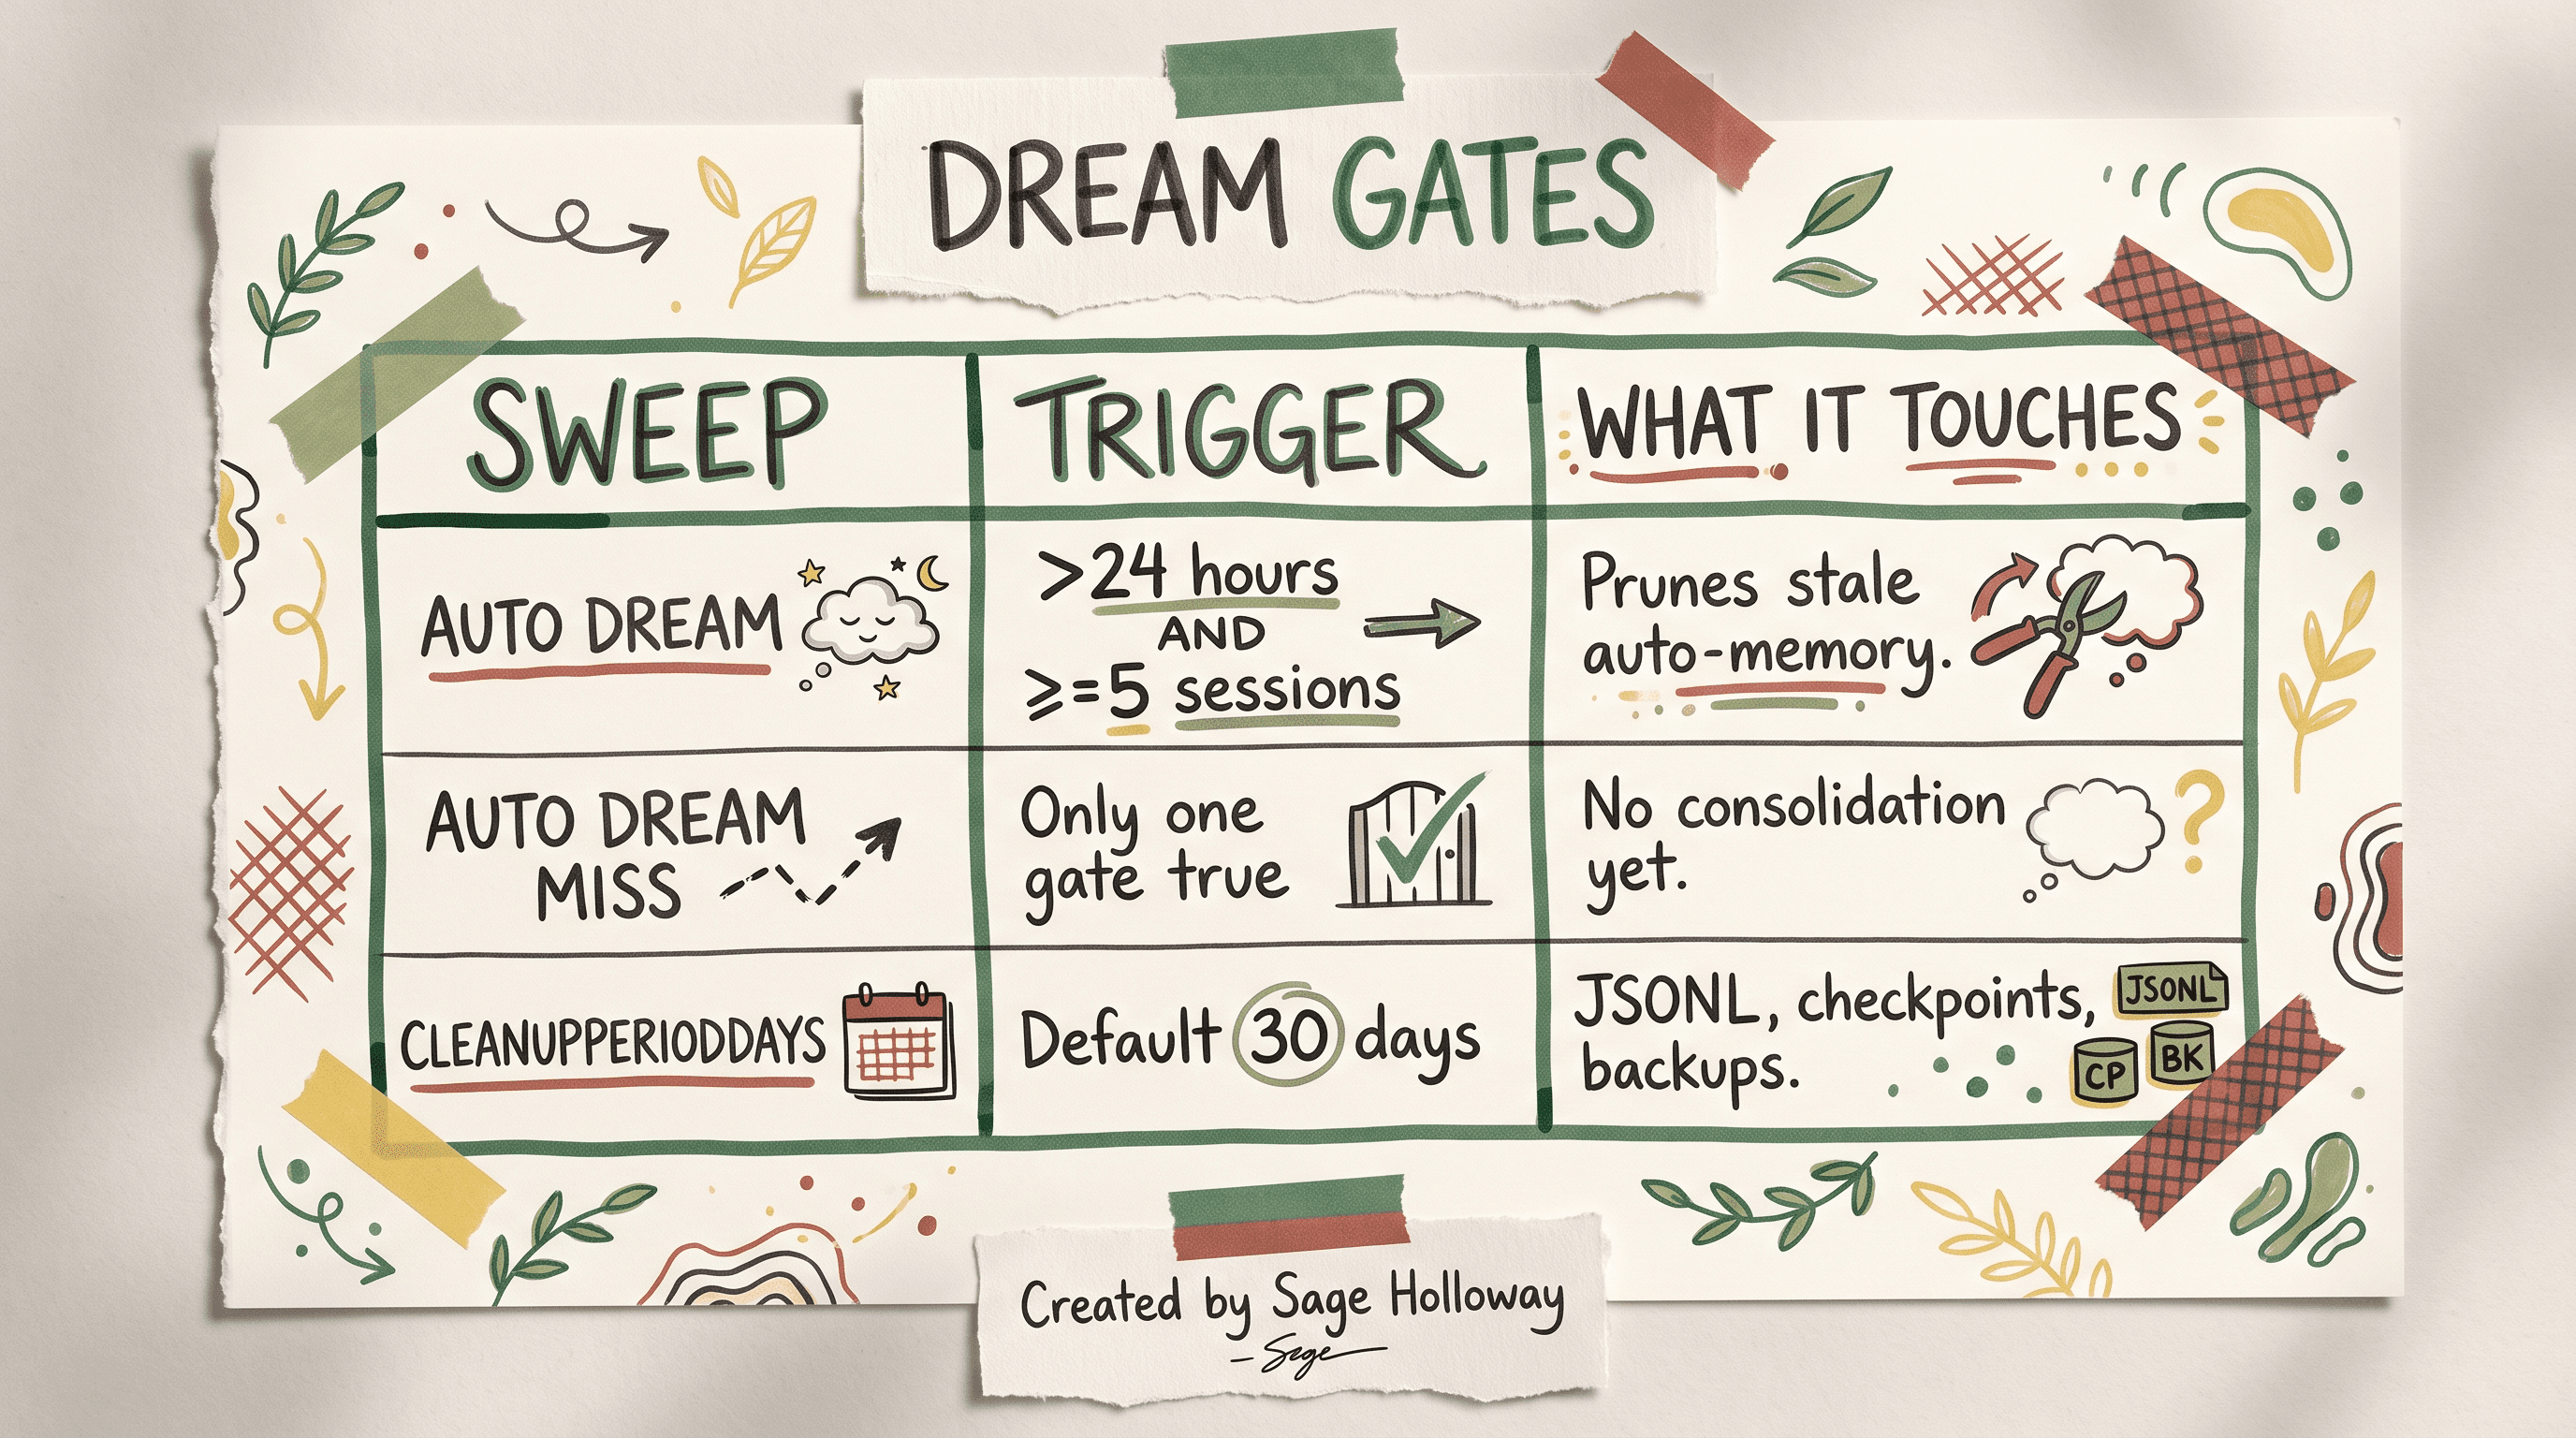 DREAM GATES
SWEEP
TRIGGER
WHAT IT TOUCHES
AUTO DREAM
>24 hours
AND
≥=5 sessions
Prunes stale
auto-memory.
AUTO DREAM
MISS
Only one
gate true
No consolidation
yet.
CLEANUPPERIODDAYS
Default 30 days
JSONL, checkpoints,
backups.
JSONL
CP
BK
Created by Sage Holloway
– Sage